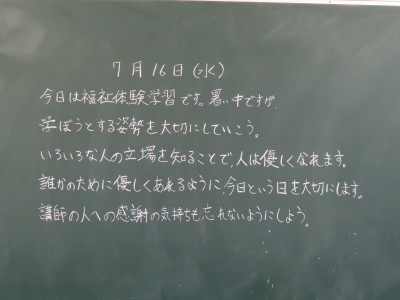 7月16日(水)
今日は福祉体験学習です。暑い中ですが、
学ぼうとする姿勢を大切にしていこう。
いろいろな人の立場を知ることで、人は優しくなれます。
誰かのために優しくあれるように、今日という日を大切にします。
講師の人への感謝の気持ちも忘れないようにしよう。